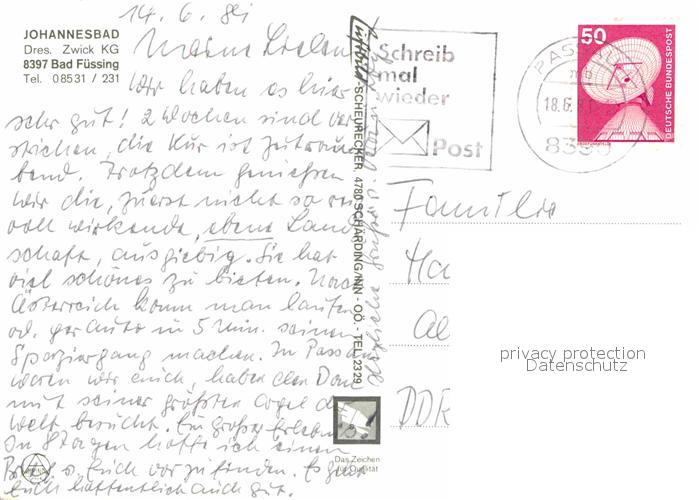 14. 6. 81
JOHANNESBAD
Dres. Zwick KG
8397 Bad Füssing
Tel. 08531 / 231
Meine Lieben
Wir haben es hier
sehr gut! 2 Wochen sind ver
strichen, die Kur ist
bend. Trotzdem genießen
wir die, zuerst nicht so
voll wirkende, ebene Land
schaft, ausgiebig. Sie hat
viel schönes zu bieten. Nach
Österreich kann man laufen
od. per Auto in 5 Min. seinen
Spaziergang machen. In Passau
waren wir auch, haben den Dom
mit seiner größten Orgel der
Welt besucht. Ein großes Erlebnis.
In 8 Tagen hoffe ich einen
Brief v. Euch vorzufinden. Es geht
Euch hoffentlich auch gut.
Herzliche Grüße
SCHEURECKER, 4780 SCHÄRDING/INN - OÖ. - TEL. 2329
Das Zeichen
für Qualität
Schreib
mal
wieder
Post
PASSAU
18.6.81
50
DEUTSCHE BUNDESPOST
Familie
Ha
DDR
privacy protection
Datenschutz